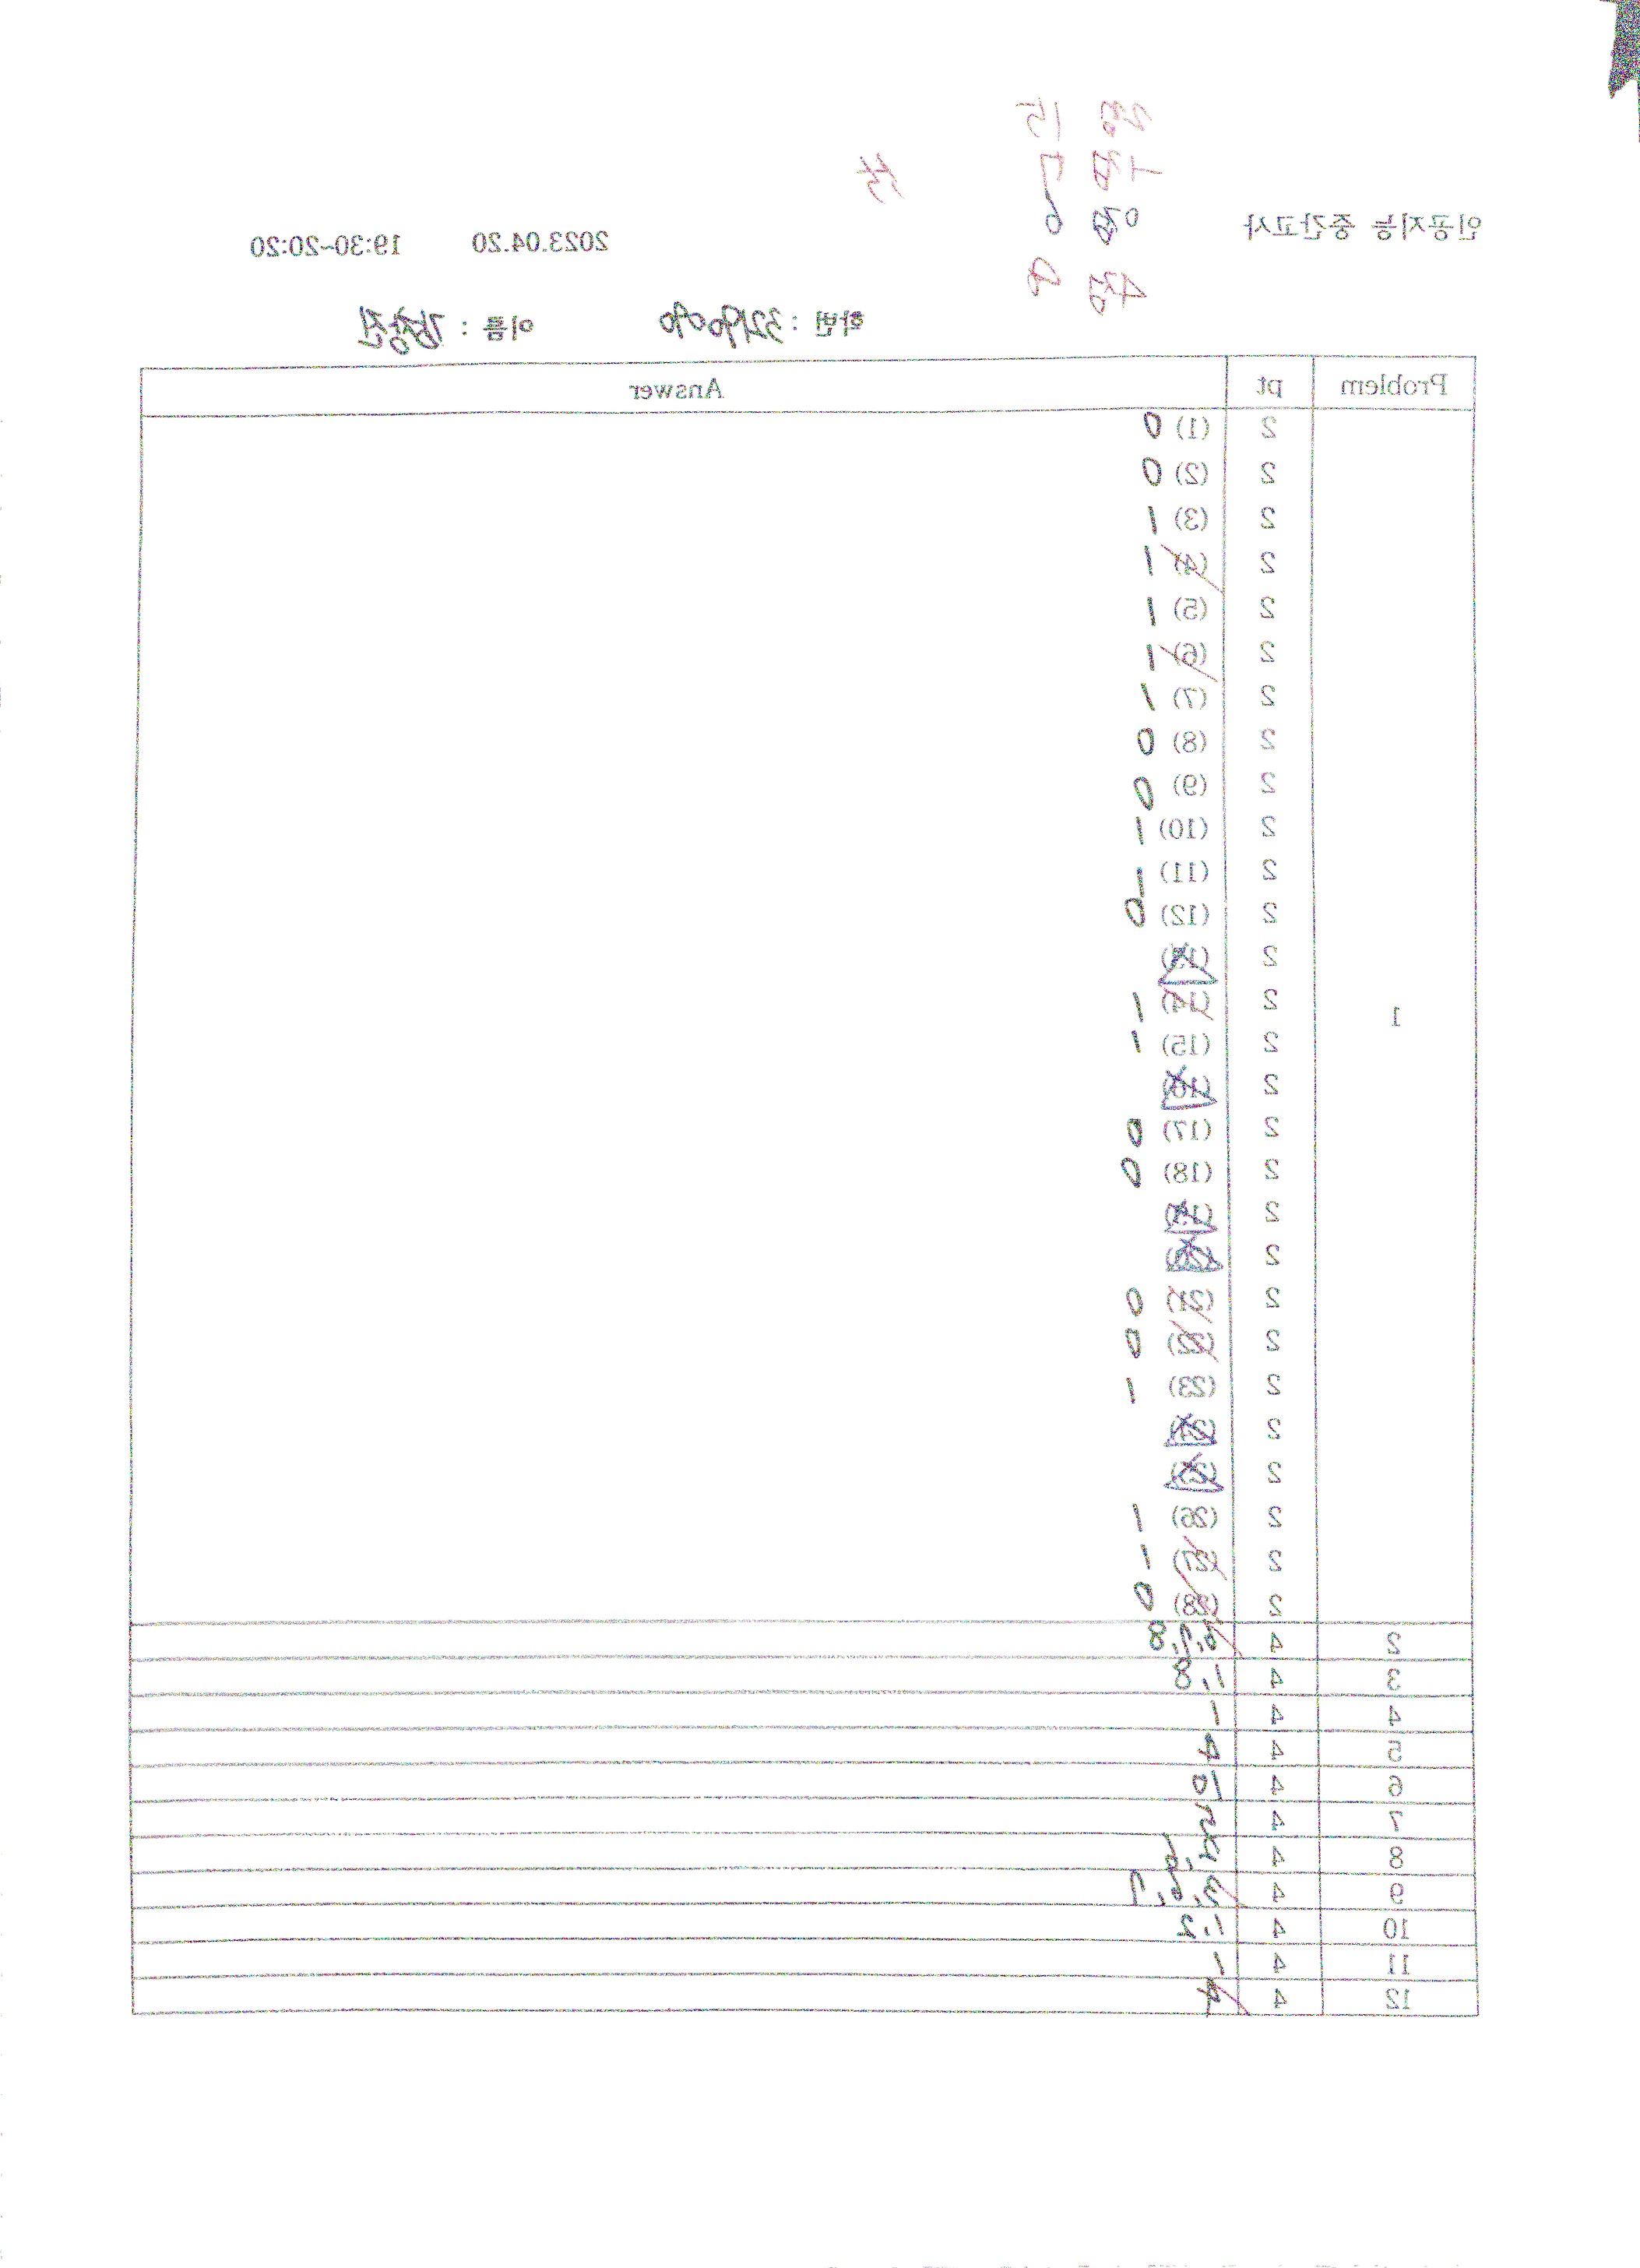 인공지능 중간고사
2023.04.20 19:30~20:20
학번 : 32190090 이름 :
Problem pt Answer
1
2 (1) 0
2 (2) 0
2 (3) 1
2 (4) 1
2 (5) 1
2 (6) 1
2 (7) 1
2 (8) 0
2 (9) 0
2 (10) 1
2 (11) 1
2 (12) 0
2 (13)
2 (14) 1
2 (15) 1
2 (16)
2 (17) 0
2 (18) 0
2 (19)
2 (20)
2 (21) 0
2 (22) 0
2 (23) 1
2 (24)
2 (25)
2 (26) 1
2 (27) 1
2 (28) 0
2 4 6,7,8
3 4 1,8
4 4 1
5 4 4
6 4 10
7 4 2
8 4 4,6
9 4 3,6,7
10 4 1,2
11 4 1
12 4 4